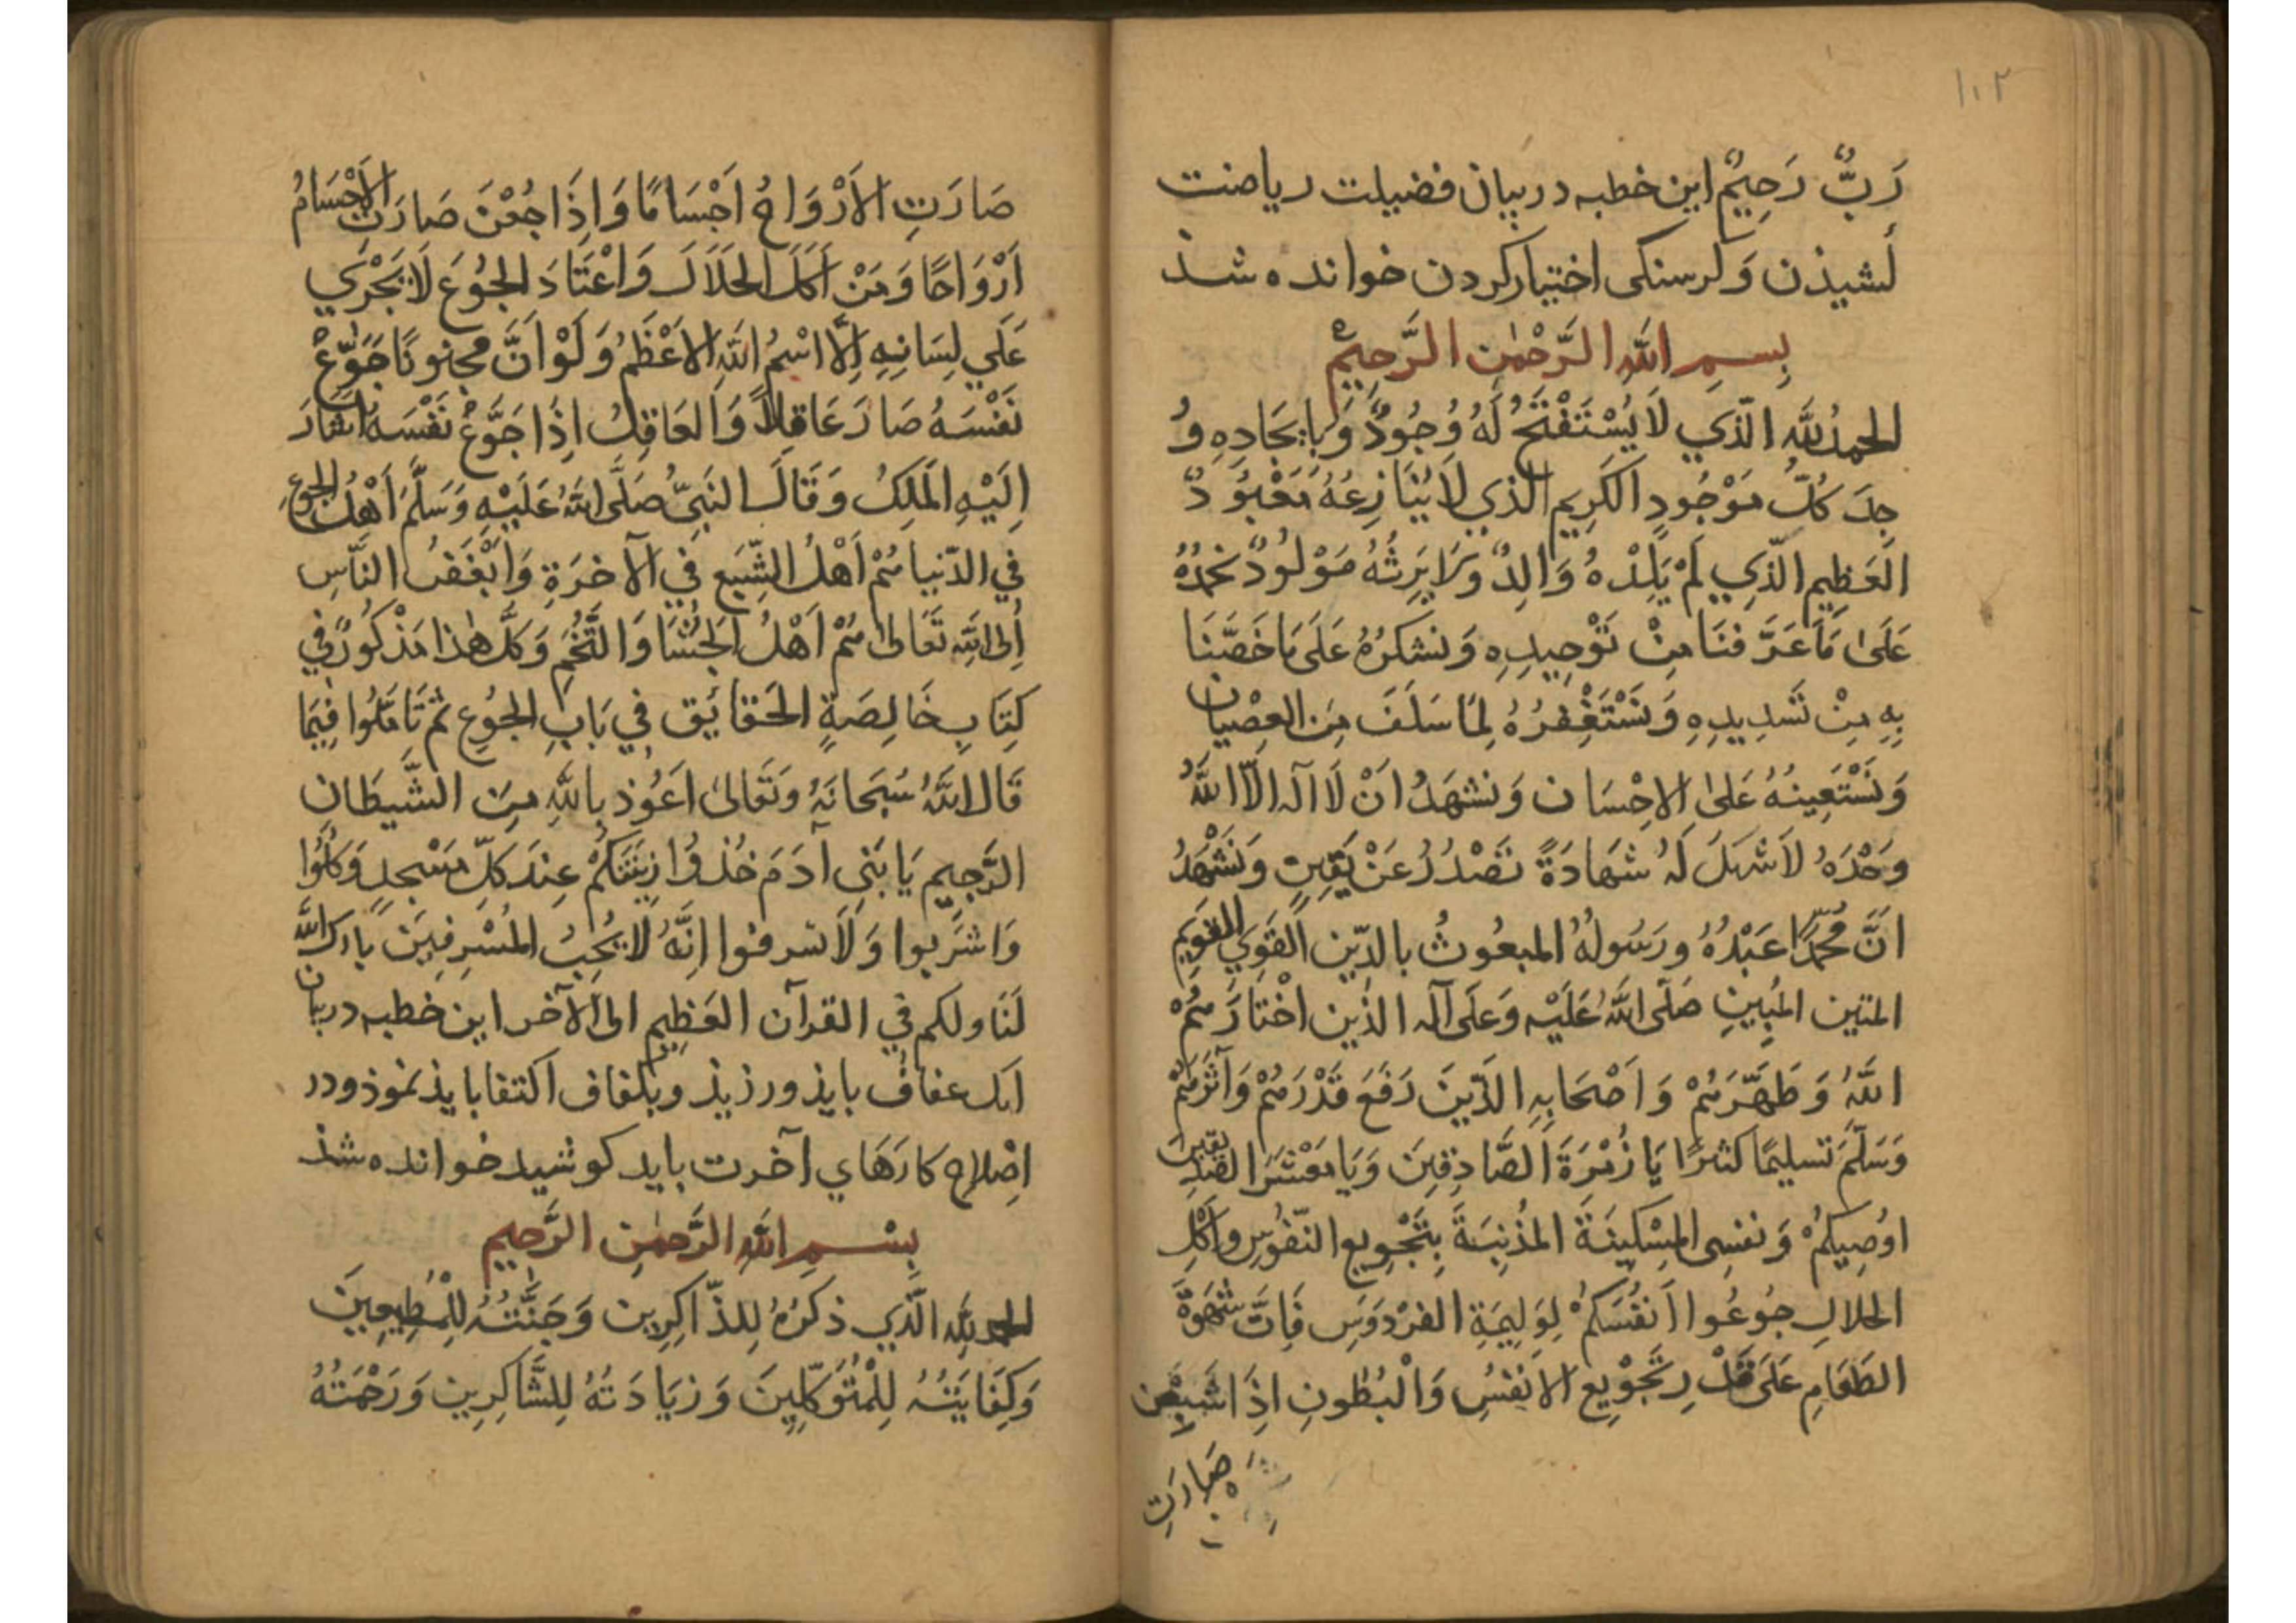 ١٠٢
رَبٌّ رَحِيمٌ این خطبه در بیان فضیلت ریاضت
کشیذن وَکرسنکی اختیار کردن خوانده شذ
بِسمِ اللهِ الرَّحْمٰنِ الرَّحِيمِ
الحمدُ للهِ الَّذي لَا يُسْتَفْتَحُ لَهُ وُجُودٌ وَبِايجَادِهِ وُ
جِدَ كُلُّ مَوْجُودٍ الكَرِيم الذي لَا يُنَازِعُهُ مَعْبُوَدٌ
العَظِيمِ الَّذِي لَمْ يَلِدْهُ وَالِدٌ وَلَا يَرِثُهُ مَوْلُودٌ نحمدُهُ
عَلَىٰ مَا عَرَّفنَا مِنْ تَوْحِيدِهِ وَنشكرُهُ عَلَى مَا خَصَّنَا
بِهِ مِنْ تَسْدِيدِهِ وَنَسْتَغْفِرُهُ لِمَا سَلَفَ مِنَ العِصْيان
وَنَسْتَعِينُهُ عَلىٰ الاِحْسَان وَنشهَدُ اَنْ لَا اله الّا اللهُ
وَحْدَهُ لَا شريكَ لَهُ شَهَادَةً تَصْدُرُ عَنْ يَقِينٍ وَنَشْهَدُ
اَنَّ مُحَمَّدًا عَبْدُهُ ورَسُولُهُ المبعُوثُ بالدِّين القَوِي القَوِيمِ
المتين المُبِينِ صَلَّى اللهُ عَلَيْه وَعَلَى آله الذين اخْتَارَهُمْ
اللهُ وَطَهَّرَهُمْ وَاَصْحَابِهِ الَّذِينَ رَفَعَ قَدْرَهُمْ وَآثَرَهُمْ
وَسَلَّمَ تسليمًا كثيرًا يَا زُمْرَةَ الصَّادِقِينَ وَيَا مَعْشَرَ الصِّدِّيقِينَ
اوُصِيكُمْ وَنفسِى المِسْكِينَةَ المُذْنِبَةَ بِتَجْوِيعِ النّفُوسِ وَاَكْلِ
الحَلالِ جُوعُوا اَنفُسَكُمْ لِوَلِيمَةِ الفِرْدَوَسِ فَاِنَّ شَهْوَةَ
الطَعَامِ عَلَى قَدْرِ تَجْوِيع الاَنفُسِ وَالْبُطُونِ اِذَا شَبِعْنَ
صَارَتِ
صَارَتِ الاَرْوَاحُ اَجْسَامًا وَاِذَا جُعْنَ صَارَتْ الاَجْسَامُ
اَرْوَاحًا وَمَنْ اَكَلَ الحَلَالَ وَاعْتَادَ الجُوعَ لَا يَجْرِي
عَلَي لِسَانِهِ اِلَّا اسْمُ اللهِ الاَعْظَمُ وَلَوْ اَنَّ مجنونًا جَوَّعَ
نَفْسَهُ صَارَ عَاقِلًا وَالعَاقِلُ اِذَا جَوَّعَ نَفْسَهُ اَشَارَ
اِلَيْهِ المَلِكُ وَقَالَ النَبِيُّ صَلَّى اللهُ عَلَيْهِ وَسَلَّمَ اَهْلُ الجُوعِ
فِي الدّنيا هُمْ اَهْلُ الشِّبَعِ فِي الآخرَةِ وَاَبْغَضُ النَّاسِ
اِلَى اللهِ تَعَالىٰ هُمْ اَهْلُ الجُشَا وَالتُّخَمِ وَكُلُّ هٰذا مَذْكُورٌ في
كِتَابِ خَالِصَةِ الحَقَائِق فِي بَابِ الجُوعِ ثم تَاَمَّلُوا فِيمَا
قَالَ اللهُ سُبحَانَهُ وَتَعَالىٰ اَعُوذ بِاللهِ مِنَ الشَّيطَانِ
الرَّجِيمِ يَا بَنِي آدَمَ خُذوُا زِينَتَكُمْ عِندَ كلِّ مَسْجِدٍ وَكُلُوا
وَاشرَبوا وَلَا تسرفوا اِنَّهُ لَا يُحِبُّ المُسْرِفِينَ بارك اللهُ
لَنَا ولكم في القرآن العَظِيمِ الى الآخر این خطبه در بیان
انک عفاف بایذ ورزیذ وبکفاف اکتفا بایذ نموذ ودر
اِصْلاحِ کارَهَاي آخرت باید کوشید خوانده شذ
بِسْمِ اللهِ الرَّحمٰنِ الرَّحِيمِ
الحمد للهِ الَّذِي ذكرُهُ لِلذّاكِرِين وَجَنَّتُهُ لِلْمُطِيعِينَ
وَكِفَايَتُهُ لِلْمُتَوَكِّلِينَ وَزِيَادَتُهُ لِلشَّاكِرِين وَرَحْمَتُهُ